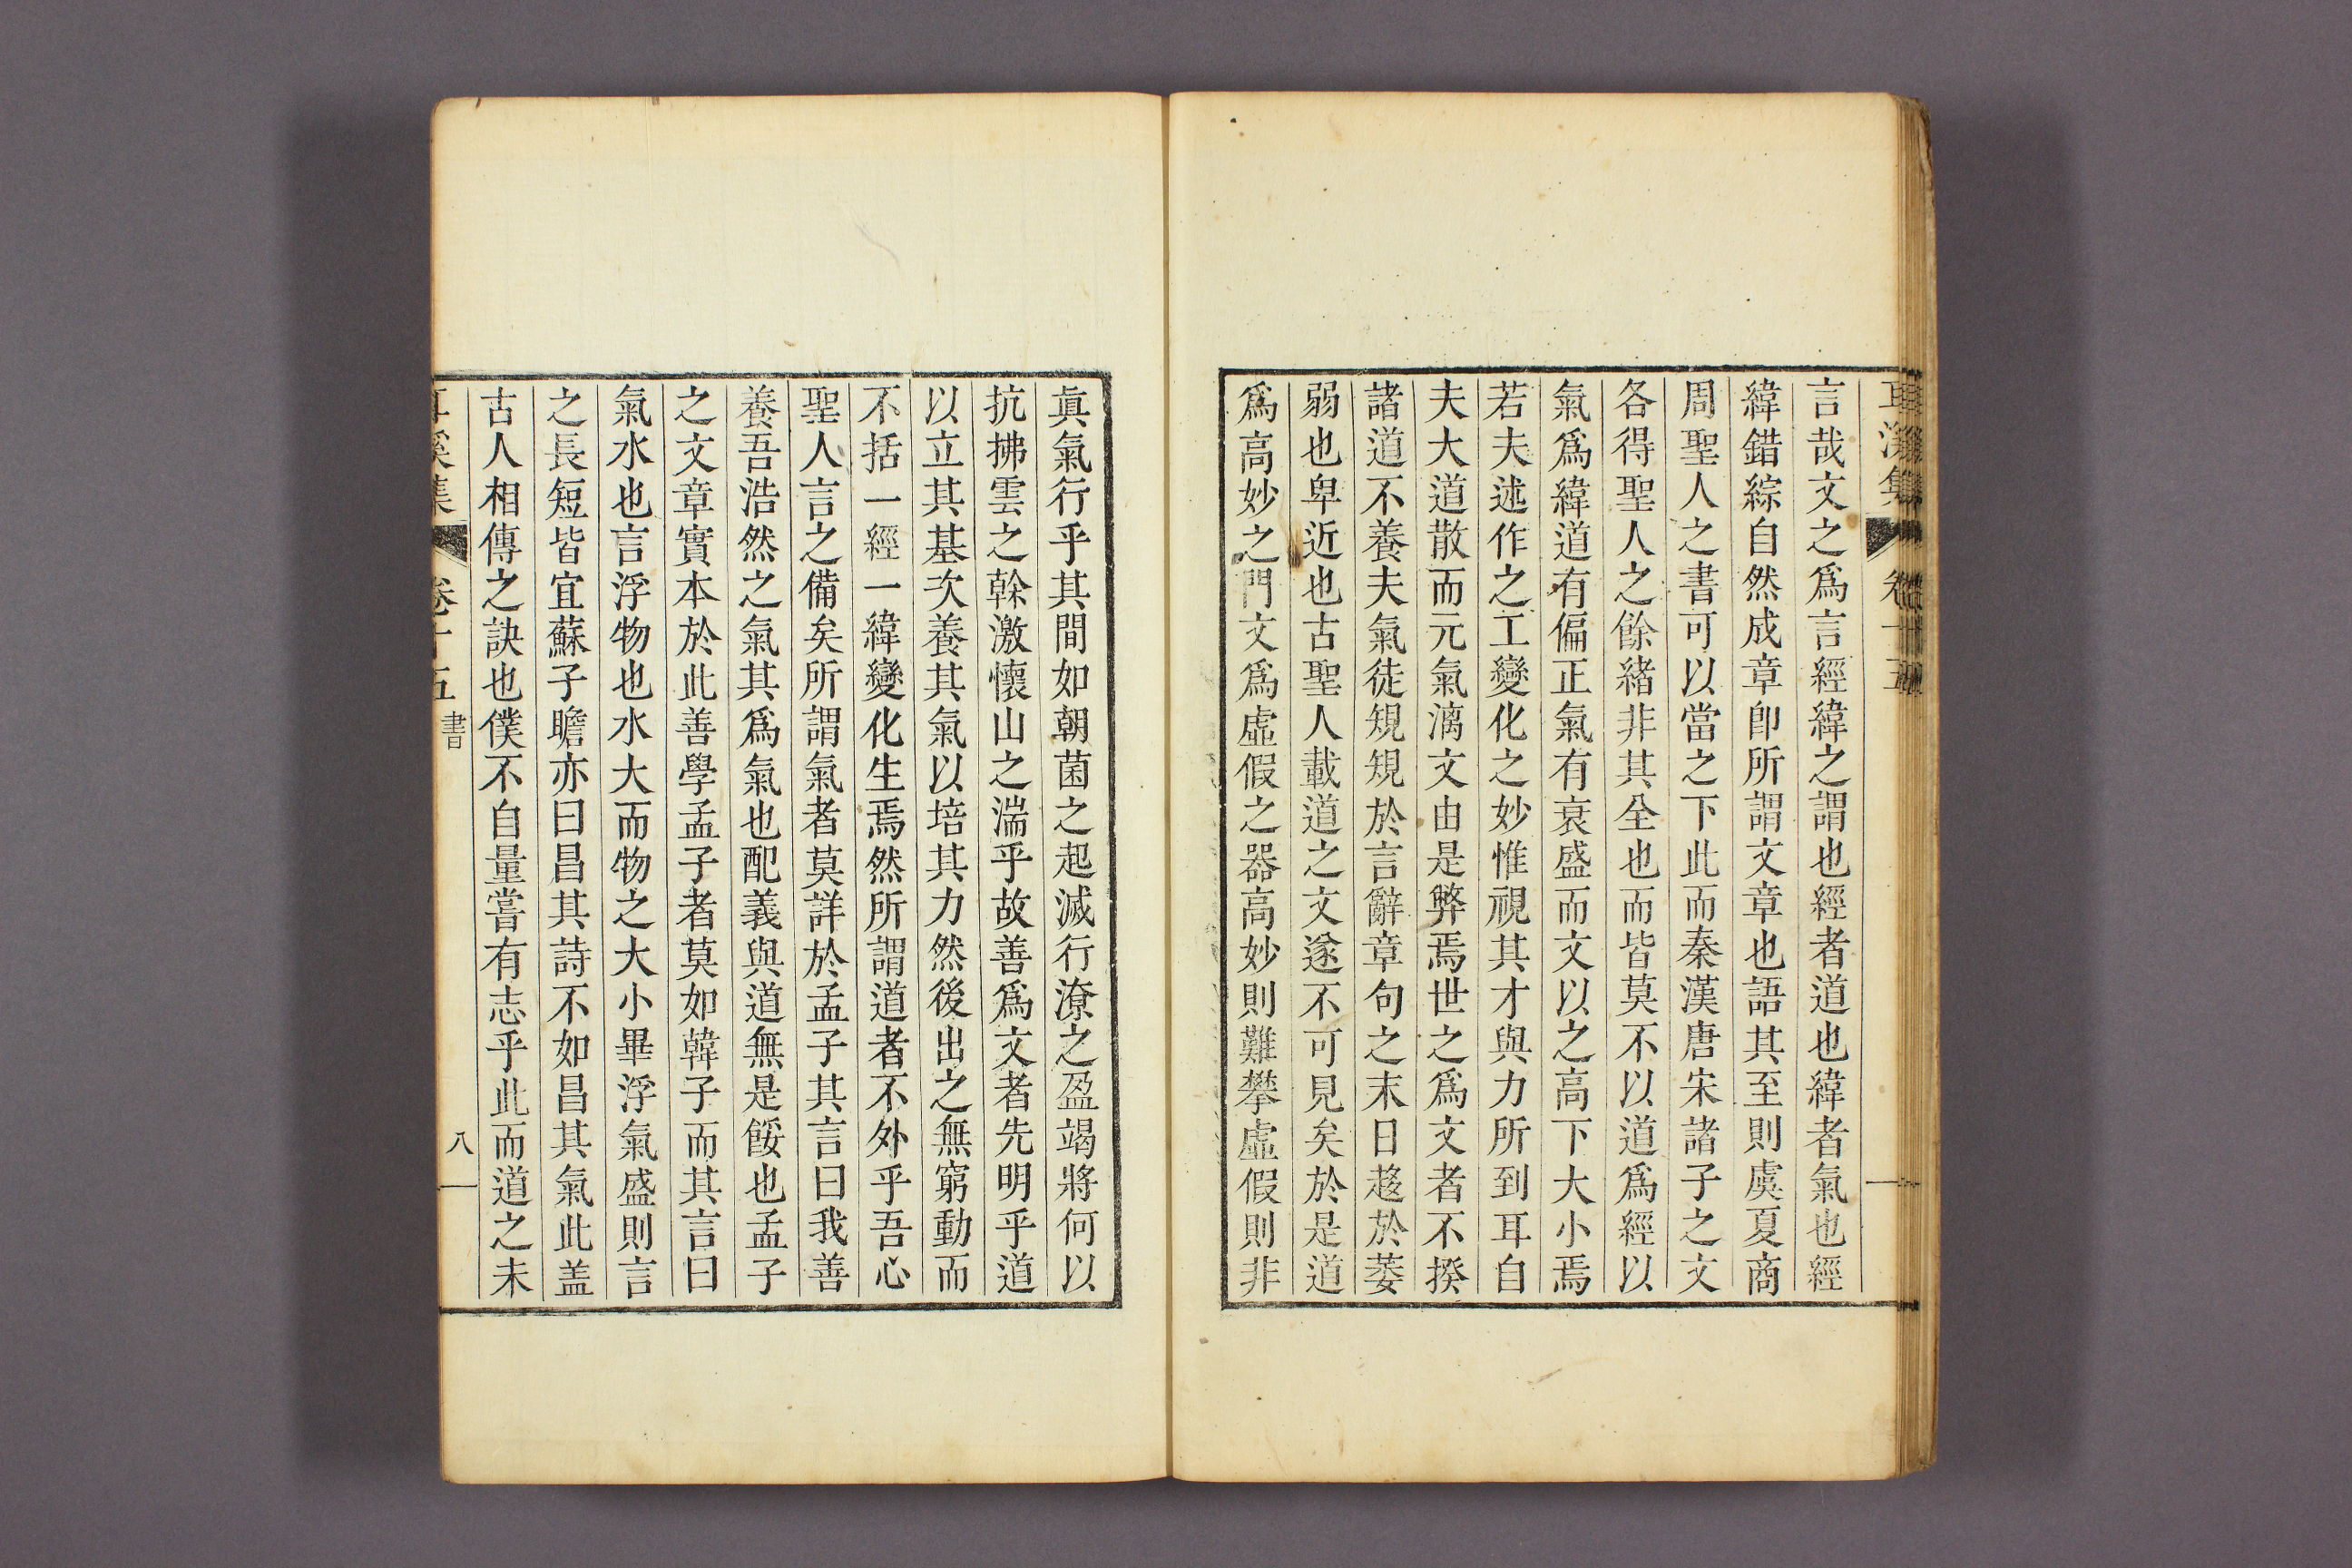 耳溪集 卷十五
言哉文之爲言經緯之謂也經者道也緯者氣也經
緯錯綜自然成章卽所謂文章也語其至則虞夏商
周聖人之書可以當之下此而秦漢唐宋諸子之文
各得聖人之餘緖非其全也而皆莫不以道爲經以
氣爲緯道有偏正氣有衰盛而文以之高下大小焉
若夫述作之工變化之妙惟視其才與力所到耳自
夫大道散而元氣漓文由是弊焉世之爲文者不揆
諸道不養夫氣徒規規於言辭章句之末日趍於萎
弱也卑近也古聖人載道之文遂不可見矣於是道
爲高妙之門文爲虛假之器高妙則難攀虛假則非
眞氣行乎其間如朝菌之起滅行潦之盈竭將何以
抗拂雲之榦激懷山之湍乎故善爲文者先明乎道
以立其基次養其氣以培其力然後出之無窮動而
不括一經一緯變化生焉然所謂道者不外乎吾心
聖人言之備矣所謂氣者莫詳於孟子其言曰我善
養吾浩然之氣其爲氣也配義與道無是餒也孟子
之文章實本於此善學孟子者莫如韓子而其言曰
氣水也言浮物也水大而物之大小畢浮氣盛則言
之長短皆宜蘇子瞻亦曰昌其詩不如昌其氣此盖
古人相傳之訣也僕不自量嘗有志乎此而道之未
耳溪集 卷十五 書 八